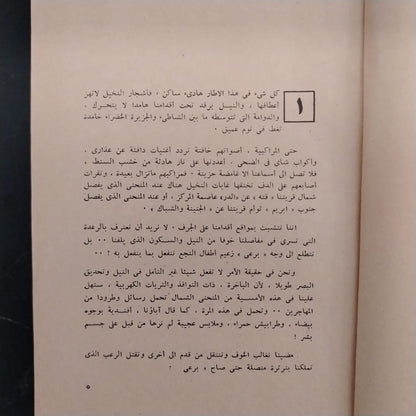 ١
كل شيء في هذا الاطار هادىء ساكن • فأشجار النخيل لاتهز
أعطافها ، والنيل يرقد تحت أقدامنا هامدا لا يتحرك ،
والدوامة التي تتوسطه ما بين الشاطىء والجزيرة الخضراء خامدة
تغط في نوم عميق •
حتى المراكبية ، أصواتهم خافتة تردد أغنيات دافئة عن عذارى ،
وأكواب شاى فى الضحى ، أعددنها على نار هادئة من خشب السنط ،
فلا تصل الى أسماعنا الا غامضة حزينة • فمراكبهم ماتزال بعيدة ، ونقرات
أصابعهم على الدف تخنقها غابات النخيل هناك عند المنحنى الذى يفصل
شمال قريتنا « قته » عن «الدر» عاصمة المركز ، أو عند المنحنى الذى يفصل
جنوب « ابريم » توأم قريتنا عن « الجنينة والشباك » •
اننا نتشبث بمواقع أقدامنا على الجرف • لا نريد أن نعترف بالرعدة
التى تسرى فى مفاصلنا خوفا من النيل والسكون الذى يلفنا •• بل
نتطلع الى وجه « برعى » زعيم أطفال النجع ننفعل بما ينفعل به !
ونحن في حقيقة الأمر لا نفعل شيئا غير التأمل في النيل وتحديق
البصر طويلا ، لأن الباخرة ، ذات النوافذ والثريات الكهربية ، ستهل
علينا في هذه الأمسية من المنحنى الشمال تحمل رسائل وطرودا من
المهاجرين •• وتحمل في هذه المرة ، كما قال آباؤنا ، أفندية بوجوه
بيضاء ، وطرابيش حمراء ، وملابس عجيبة لم نرها من قبل على جسم
بشر !
مضينا نغالب الخوف وننتقل من قدم الى أخرى ونقتل الرعب الذى
تملكنا بثرثرة متصلة حتى صاح « برعى » !
٥